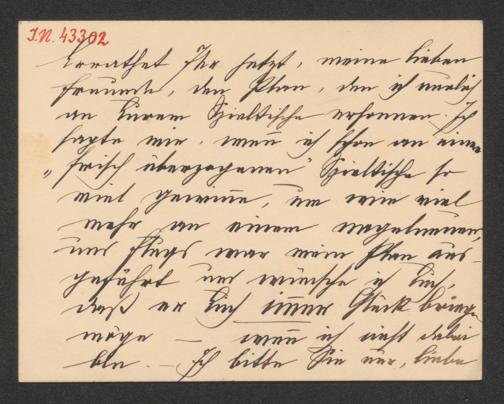 I.N. 43302
Errathet Ihr jetzt, meine lieben
Freunde, den Plan, den ich neulich
an Eurem Spieltische ersonnen. Ich
sagte mir, wenn ich schon an einem
„frisch überzogenen" Spieltische so
viel gewinne, um wie viel
mehr an einem nagelneuen,
und flugs war mein Plan aus-
geführt und wünsche ich Euch,
daß er Euch immer Glück bringen
möge — wenn ich nicht dabei
bin. — Ich bitte Sie nur, liebe